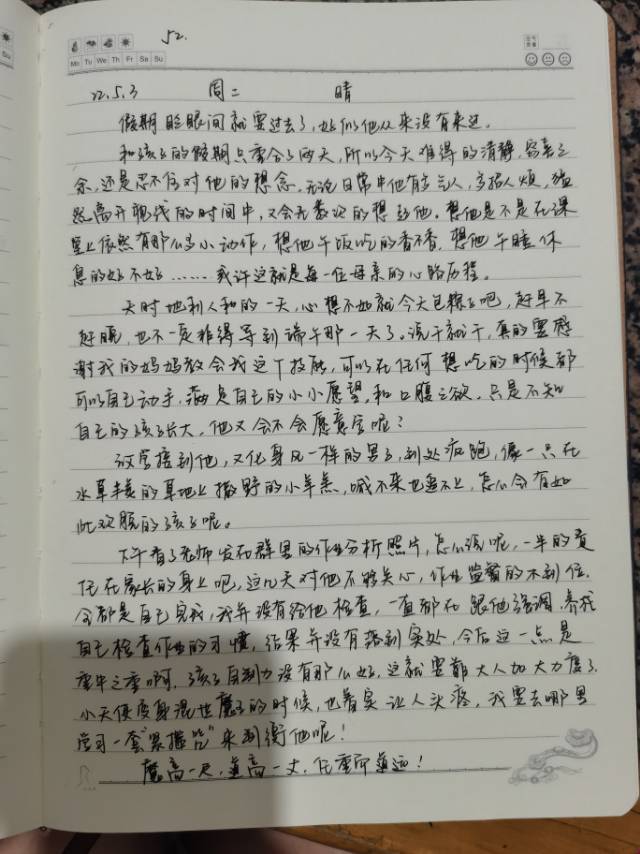 52.
Mo Tu We Th Fr Sa Su
22.5.3 周二 晴
假期眨眼间就要过去了,好似他从来没有来过。
和孩子的假期只重合了两天,所以今天难得的清静,窃喜之
余,还是忍不住对他的想念。无论日常中他有多气人,多招人烦,猛
然离开视线的时间中,又会无数次的想到他。想他是不是在课
堂上依然有那么多小动作,想他午饭吃的香不香,想他午睡休
息的好不好……或许这就是每一位母亲的心路历程。
天时地利人和的一天,心想不如就今天包粽子吧,赶早不
赶晚,也不一定非得等到端午那一天了。说干就干,真的要感
谢我的妈妈教会我这个技能,可以在任何想吃的时候都
可以自己动手,满足自己的小小愿望和口腹之欲。只是不知
自己的孩子长大,他又会不会愿意学呢?
放学接到他,又化身风一样的男子,到处疯跑,像一只在
水草丰美的草地上撒野的小羊羔,喊不来也追不上,怎么会有如
此欢脱的孩子呢。
下午看了老师发在群里的作业分析照片,怎么说呢,一半的责
任在家长的身上吧,这几天对他不够关心,作业监督的不到位,
全都是自己完成,我并没有给他检查,一直都在跟他强调,养成
自己检查作业的习惯,结果并没有落到实处,今后这一点是
重中之重啊,孩子自制力没有那么好,这就要靠大人加大力度了。
小天使变身混世魔王的时候,也着实让人头疼,我要去哪里
学习一套“紧箍咒”来制衡他呢!
魔高一尺,道高一丈,任重而道远!